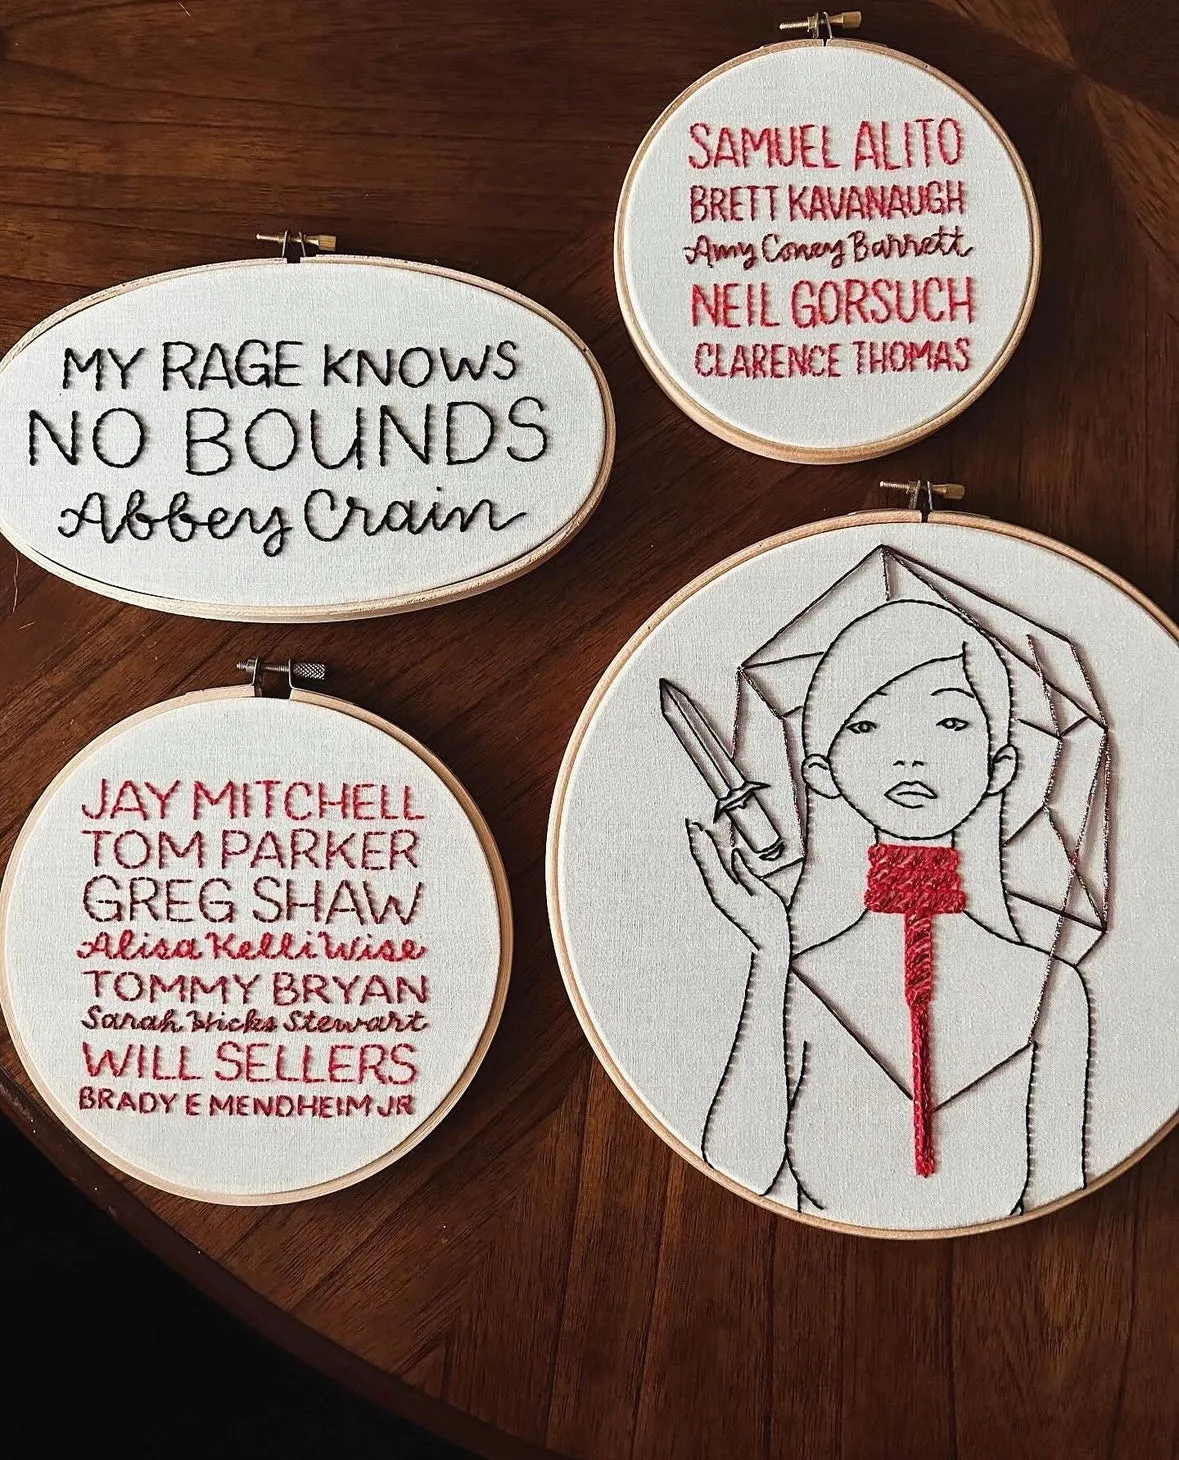 MY RAGE KNOWS
NO BOUNDS
Abbey Crain
SAMUEL ALITO
BRETT KAVANAUGH
Amy Coney Barrett
NEIL GORSUCH
CLARENCE THOMAS
JAY MITCHELL
TOM PARKER
GREG SHAW
Alisa Kelli Wise
TOMMY BRYAN
Sarah Hicks Stewart
WILL SELLERS
BRADY E MENDHEIM JR